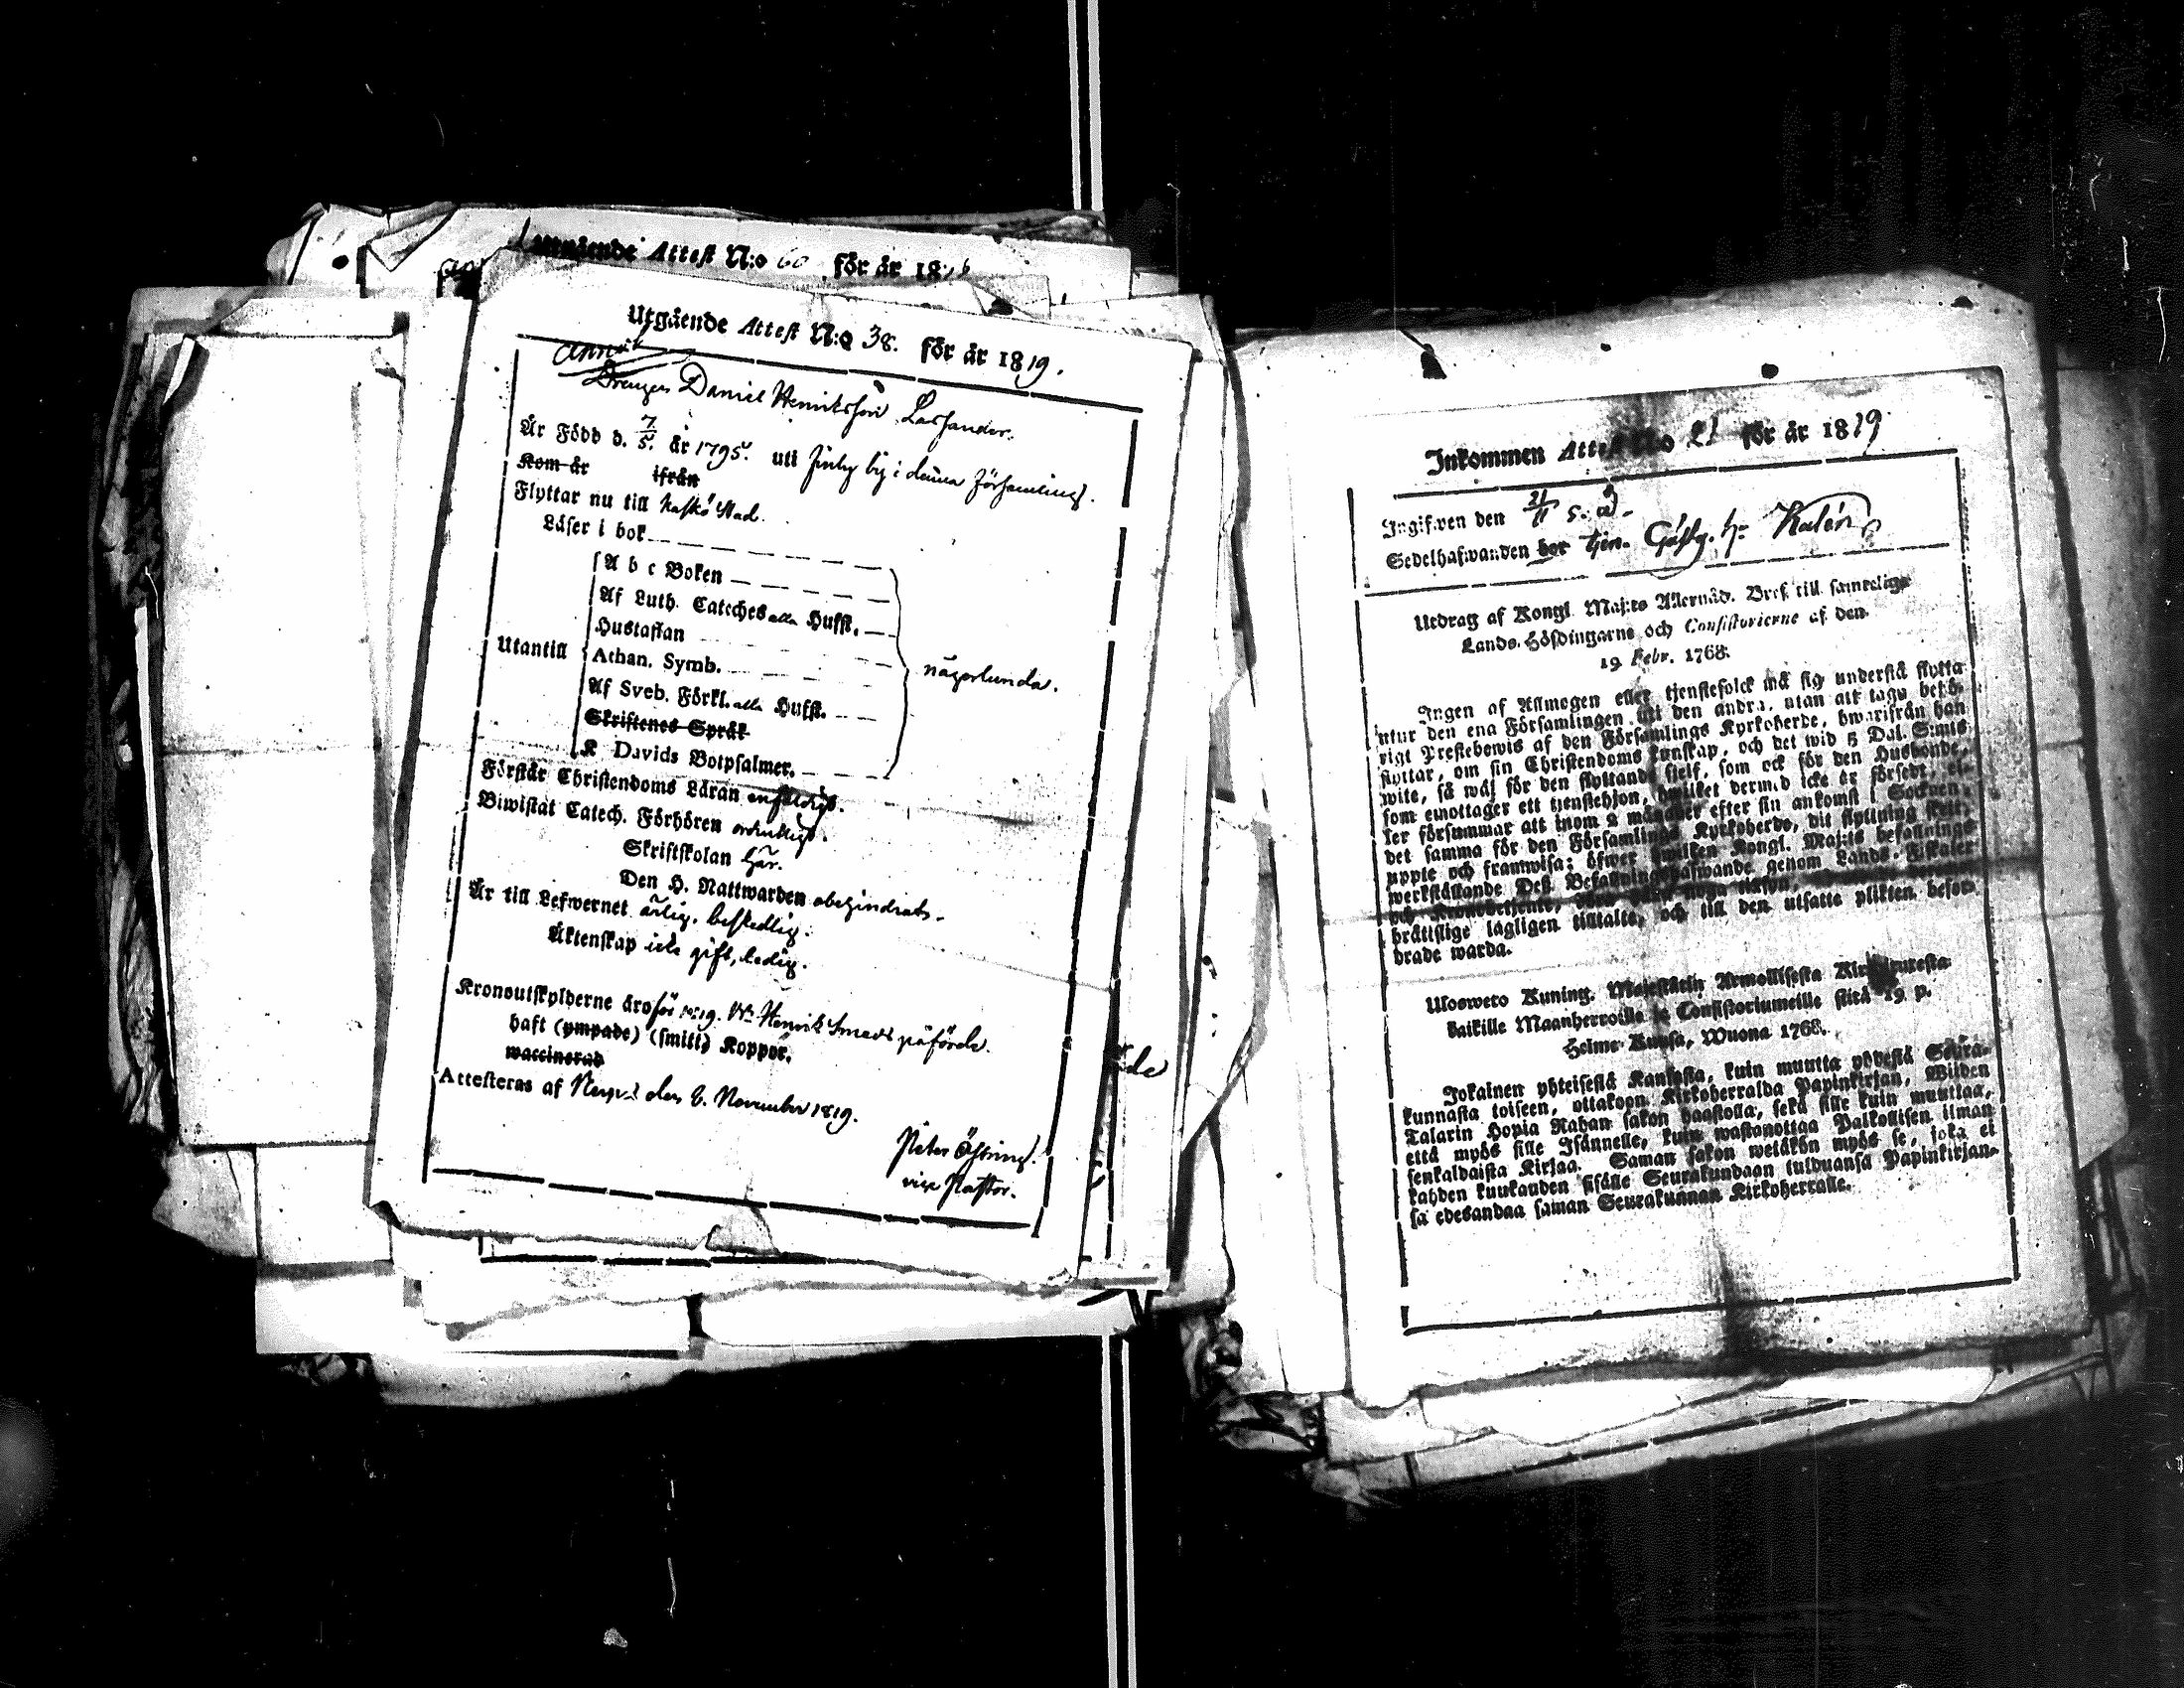 Utgående Attest N:o 60 för år 18
Utgående Attest N:o 38. för år 1819.
Drengen Daniel Henriksson Lassander.
Är Född d. 7/5. år 1795. uti by i denna Församling.
Kom år ifrån
Flyttar nu till Kaskö Stad.
Läser i bok
Utantill
A b c Boken
Af Luth. Cateches alla Hufst.
Hustaflan
Athan. Symb.
Af Sveb. Förkl. alla Hufst.
Skriftenes Språk
K Davids Botpsalmer.
någorlunda.
Förstår Christendoms Läran enfaldigt.
Biwistat Catech. Förhören ordentligt.
Skriftskolan här.
Den H. Nattwarden obehindrats.
Är till Lefwernet ärlig, beskedlig.
Äktenskap icke gift, ledig.
Kronoutskylderne äro för 1819. Henrik påförde.
haft (ympade) (smitt) Koppor.
waccinerad
Attesteras af den 6. November 1819.
Peter
vice Pastor.
Inkommen Attest N:o 21 för år 1819
Ingifwen den 21/11 s. å.
Sedelhafwanden bor tjen. Gästg. h:
Utdrag af Kongl. Maj:ts Allernåd. Bref till samtelige
Lands-Höfdingarne och Consistorierne af den
19 Febr. 1768.
Ingen af Allmogen eller tjenstefolck må sig understå flytta
utur den ena Församlingen till den andra, utan att taga behö-
rigt Prestebewis af den Församlings Kyrkoherde, hwarifrån han
flyttar, om sin Christendoms kunskap, och det wid 5 Dal. S:mts
wite, så wäl för den flyttande sielf, som ock för den Husbonde,
som emottager ett tjenstehjon, hwilket dermed icke är försedt, el-
ler försummar att inom 2 månader efter sin ankomst i Socknen
det samma för den Församlings Kyrkoherde, dit flyttning skett,
uppte och framwisa; öfwer hwilken Kongl. Maj:ts befallnings
werkställande Deß Befallningshafwande genom Lands-Fiskaler
och Kronobetjente,
brättslige lagligen tilltalte, och till den utsatte plikten befor-
drade warda.
Ulosweto Kuning. Majestätin Armollisesta Kirjoituresta
kaikille Maanherroille ja Consistoriumeille siitä 19 p.
Helme-Kuusa, Wuona 1768.
Jokainen yhteisestä Kansasta, kuin muutta yhdestä Seura-
kunnasta toiseen, ottakoon Kirkoherralda Papinkirjan, Wiiden
Talarin Hopia Rahan sakon haastolla, sekä sille kuin muuttaa,
että myös sille Isännelle, kuin wastanottaa Palkollisen ilman
senkaldaista Kirjaa. Saman sakon wetäkön myös se, joka ei
kahden kuukauden sisälle Seurakundaan tulduansa Papinkirjan-
sa edesandaa saman Seurakunnan Kirkoherralle.